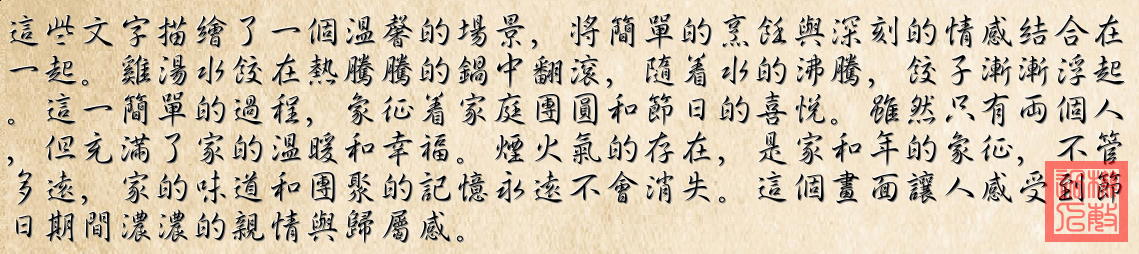 這些文字描繪了一個溫馨的場景，將簡單的烹飪與深刻的情感結合在
一起。雞湯水餃在熱騰騰的鍋中翻滾，隨着水的沸騰，餃子漸漸浮起
。這一簡單的過程，象征着家庭團圓和節日的喜悅。雖然只有兩個人
，但充滿了家的溫暖和幸福。煙火氣的存在，是家和年的象征，不管
多遠，家的味道和團聚的記憶永遠不會消失。這個畫面讓人感受到節
日期間濃濃的親情與歸屬感。